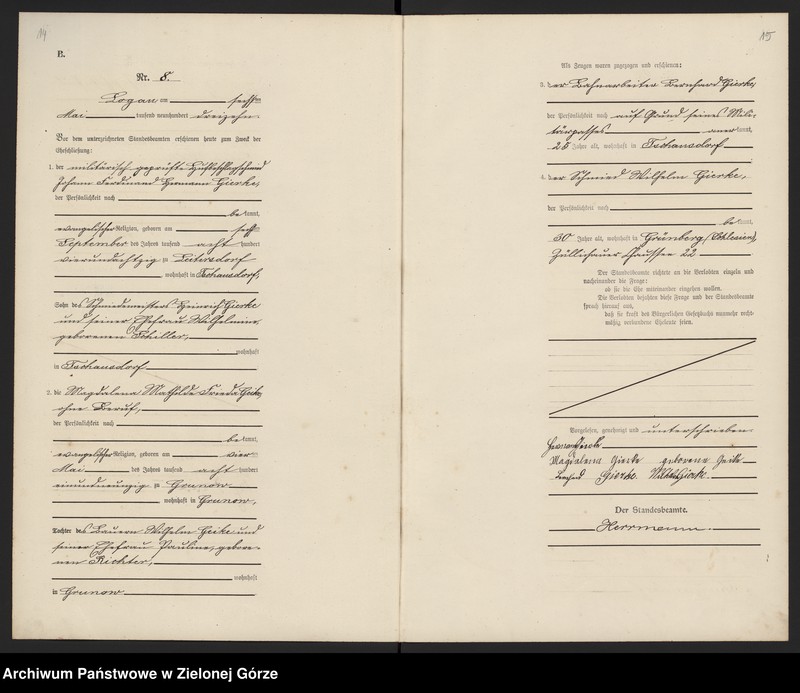 14
B.
Nr. 8.
Logau, am sechsten
Mai tausend neunhundert dreizehn.
Vor dem unterzeichneten Standesbeamten erschienen heute zum Zweck der
Eheschließung:
1. der militärisch geprüfte Hufbeschlagschmied
Johann Ferdinand Hermann Gierke,
der Persönlichkeit nach
bekannt,
evangelischer Religion, geboren am sechsten
September des Jahres tausend acht hundert
vierundachtzig zu
wohnhaft in Tschausdorf,
Sohn des Schmiedemeisters Heinrich Gierke
und seiner Ehefrau Wilhelmine,
geborenen Schiller,
wohnhaft
in Tschausdorf
2. die Magdalena Mathilde Frieda Geike,
ohne Beruf,
der Persönlichkeit nach
bekannt,
evangelischer Religion, geboren am vierten
Mai des Jahres tausend acht hundert
einundneunzig zu Grunow
wohnhaft in Grunow,
Tochter des Bauern Wilhelm Geike und
seiner Ehefrau Pauline, gebore-
nen Richter,
wohnhaft
in Grunow
15
Als Zeugen waren zugezogen und erschienen:
3. der Bahnarbeiter Bernhard Gierke,
der Persönlichkeit nach auf Grund seines Mili-
tärpasses anerkannt,
28 Jahre alt, wohnhaft in Tschausdorf
4. der Schmied Wilhelm Gierke,
der Persönlichkeit nach
bekannt,
30 Jahre alt, wohnhaft in Grünberg (Schlesien),
Züllichauer Chaussee 22
Der Standesbeamte richtete an die Verlobten einzeln und
nacheinander die Frage:
ob sie die Ehe miteinander eingehen wollen.
Die Verlobten bejahten diese Frage und der Standesbeamte
sprach hierauf aus,
daß sie kraft des Bürgerlichen Gesetzbuchs nunmehr recht-
mäßig verbundene Eheleute seien.
Vorgelesen, genehmigt und unterschrieben
Hermann Gierke
Magdalena Gierke geborene Geike
Bernhard Gierke. Wilhelm Gierke
Der Standesbeamte.
Herrmann.
Archiwum Państwowe w Zielonej Górze